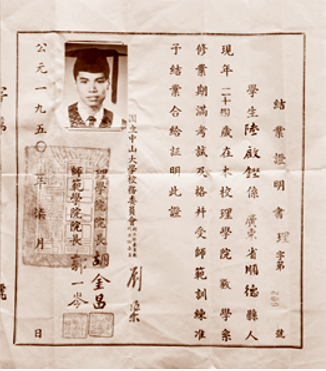 結業證明書 理字第269號
學生陸啟鏗係廣東省順德縣人
現年二十四歲在本校理學院數學系
修業期滿考試及格并受師範訓練准
予結業合給証明此證
國立中山大學校務委員會
劉
理學院院長 胡金昌
師範學院院長 郭一岑
公元一九五〇年柒月 日
字第
號